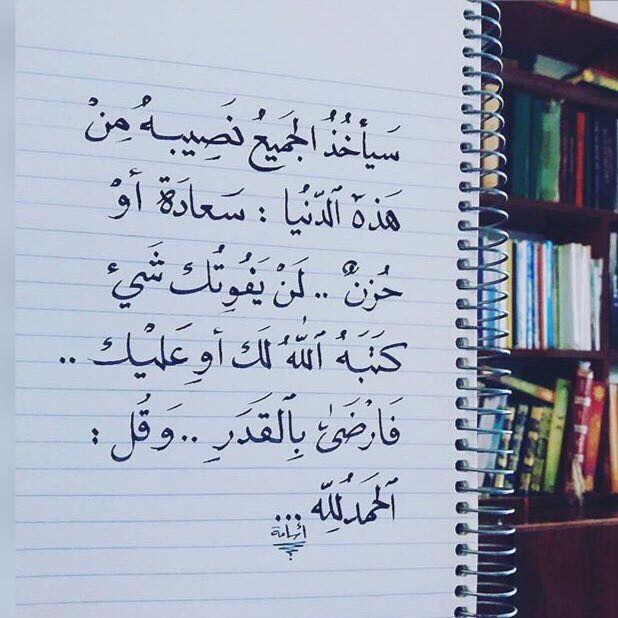 سَيأخُذُ الجَميعُ نَصِيبهُ مِنْ
هَذهْ ٱلدّنْيا : سَعادَة أوْ
حُزنٌ .. لَنْ يَفُوتُك شَيء
كَتَبَهُ ٱللّٰهُ لَك أوِ عَليْك ..
فَارْضَىٰ بِٱلقَدَرِ .. وَقُل :
ٱلحَمدُللِّه ...
أسامة